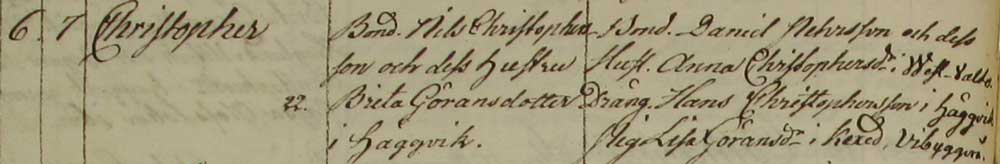 6. 7 Christopher Bond. Nils Christophers- Bond. Daniel Pehrsson och dess
son och dess hustru Hust. Anna Christophersdr i West-
22. Brita Göransdotter Dräng. Hans Christophersson i Häggvik
i Häggvik. Pig Lisa Göransdr i Kexed, Vibyggerå